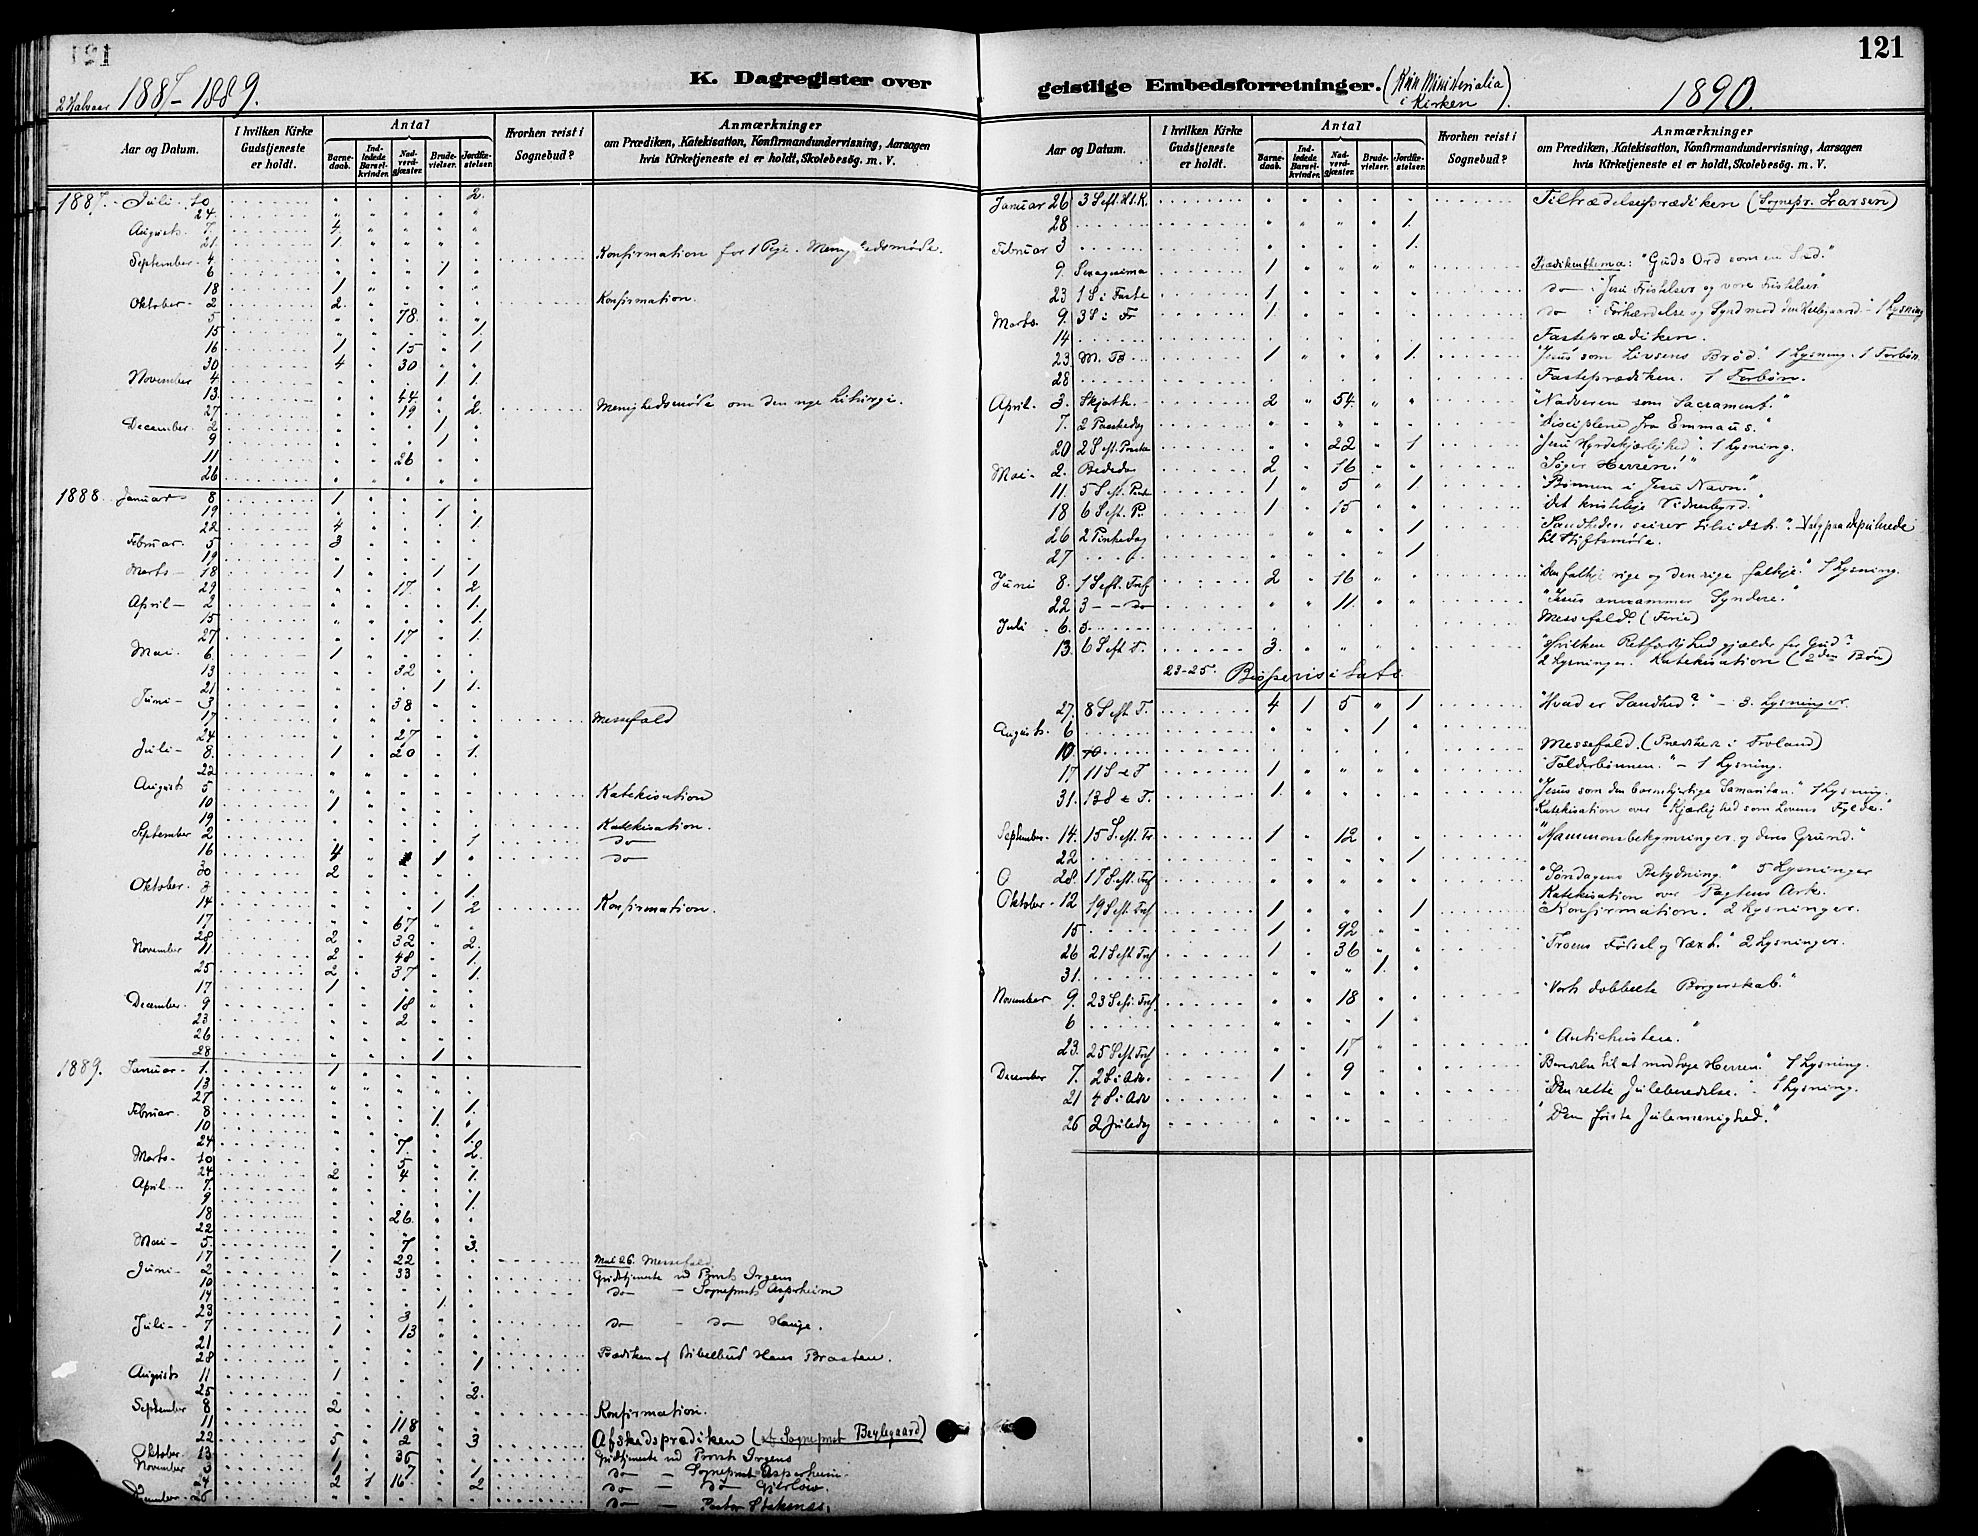 121
2 Halvaar 1887-1889.
K. Dagregister over
Aar og Datum.
I hvilken Kirke Gudstjeneste er holdt.
Antal
Barne-daab.
Ind-ledede Barsel-kvinder.
Nad-verd-gjæster.
Brude-vielser.
Jordfæ-stelser.
Hvorhen reist i Sognebud?
Anmærkninger
om Prædiken, Katekisation, Konfirmandundervisning, Aarsagen
hvis Kirketjeneste ei er holdt, Skolebesøg. m. V.
1887. Juli 10 2.
24
Augusts. 7. 4.
21 1
September 4. Konfirmation for 1 Pige. Menighedsmøde.
6 1
18 1
Oktober 2 2. Konfirmation.
5 78.
15 1.
16 1 15 1
30 4 30
November 4 1 1.
13. 44.
27 19 2. Menighedsmøde om den nye Liturgi.
December 2 1
9 1
11 26
26
1888. Januar 8 1
19 1
22 4 1.
Februar. 5 3
19
Marts 18 1 1 1
29 17. 2.
April 2 1.
15 1.
27 17 1.
Mai 6. 1
13 32
21 1 1.
Juni 3 38
17 Messefald
24 27
Juli 8. 1 20 1.
22
Augusts 5 Katekisation
10 1
19 Katekisation.
September 2 1 do
16 4 1 do
30 2
Oktober. 3 1.
14 1 2 Konfirmation.
17 67
28 2 32 2.
November 11 2 48 1.
25 2 37 1.
17 1
December. 9 18
23 2
26
28 1
1889. Januar 1. 1
13
27
Februar. 8 1.
10 1.
24 7. 1.
Marts. 10 5 2.
24 2 4 1.
April 7.
9 1.
18 26.
22
Mai 5. 7 3.
17 1 22 Mai 26. Messefald
Juni 2 33 Gudstjeneste ved Provst Irgens
10 do Sogneprest Asperheim
14 1.
23 3
Juli 7 1 13 do do Hauge.
21
28 Prædiken af Bibelbud Hans Braaten.
Augusts 11 1 1
25 2.
September 8 2 Konfirmation.
11 118
22 5 2 3 Afskedsprædiken (af Sogneprest Beylegaard)
Oktober. 13 1 36 Gudstjeneste ved Provst Irgens
November 3 1 7 1. do Sogneprest Asperheim
24 2 1 16 2 do do Gjerløw.
December 26 do Pastor
121
geistlige Embedsforretninger. (Kun Ministerialia i Kirken).
1890.
Aar og Datum.
I hvilken Kirke Gudstjeneste er holdt.
Antal
Barne-daab.
Ind-ledede Barsel-kvinder.
Nad-verd-gjæster.
Brude-vielser.
Jordfæ-stelser.
Hvorhen reist i Sognebud?
Anmærkninger
om Prædiken, Katekisation, Konfirmandundervisning, Aarsagen
hvis Kirketjeneste ei er holdt, Skolebesøg. m. V.
Januar 26 3 S. eft. H.3.K. Tiltrædelsesprædiken (Sognepr. Larsen)
28 1.
Februar 3 1.
9. Sexagesima 1 Prædikenthema: "Guds Ord som en Sæd."
23 1 S i Faste 1 do "Jesu Fristelser og vore Fristelser"
Marts. 9. 3 S i Fr 1. do Forhærdelse og Synd mod den Helligaand. 1 Lysning
14 Fasteprædiken.
23 M. B. 1 1. "Jesus som Livsens Brød." 1 Lysning. 1 Forbøn.
28 Fasteprædiken. 1 Forbøn.
April. 3. Skjærth. 2 54. "Nadveren som Sacrament."
7. 2 Paaskedag "Disciplene fra Emmaus."
20 2 S. eft. Paaske 22 1 "Jesu Hyrdekjærlighed". 1 Lysning.
Mai 2. Bededag 2 16 "Søger Herren!"
11. 5 S. eft. Paaske 1 5 1 "Bønnen i Jesu Navn."
18 6 S. eft. P. 1 15 "Det kristelige Vidnesbyrd."
26 2 Pintsedag 1 "Sandheden seirer tilsidst." Valg paa depulerede
27 1 til Stiftsmøde.
Juni 8. 1 S. eft. Tref 2 16 "Den fattige rige og den rige fattige." 1 Lysning.
22 3 do 11. "Jesus annammer Syndere."
Juli 6. 5. Messefald. (Ferie)
13. 6 S eft T. 3. "Hvilken Retfærdighed gjælder for Gud?"
2 Lysninger. Katekisation (2den Bøn)
23-25. Bispevisitats.
27. 8 S. eft. T. 4 1 5 1 "Hvad er Sandhed?" - 3. Lysninger.
Augusts. 6 1
10. Messefald. (Prædiken i Froland)
17 11 S e T 1 "Tolderbønnen." - 1 Lysning.
31. 13 S e T. 1. "Jesus som den barmhjertige Samaritan." 1 Lysning.
Katekisation over "Kjærlighed som Lovens Fylde."
September. 14. 15 S. eft. Tr. 1 12 "Mammonsbekymringer og deres Grund."
22 1
28. 17 S. eft. Tref "Søndagens Betydning." 5 Lysninger
Katekisation over Pagtens Ark.
Oktober 12 19 S eft. Tref 1 1 "Konfirmation. 2 Lysninger.
15 1 92
26 21 S eft Tref 1 36 "Troens Fødsel og Væxt." 2 Lysninger.
31. 1.
November 9. 23 S eft. Tref. 18 "Vort dobbelte Borgerskab."
6 1
23. 25 S eft Tref 17 "Antichristen."
December 7. 2 S i Adv. 1 9 "Beredelse til at modtage Herren." 1 Lysning.
21 4 S i Adv "Den rette Juleberedelse. 1 Lysning.
26 2 Juledag "Den første Julemenighed."